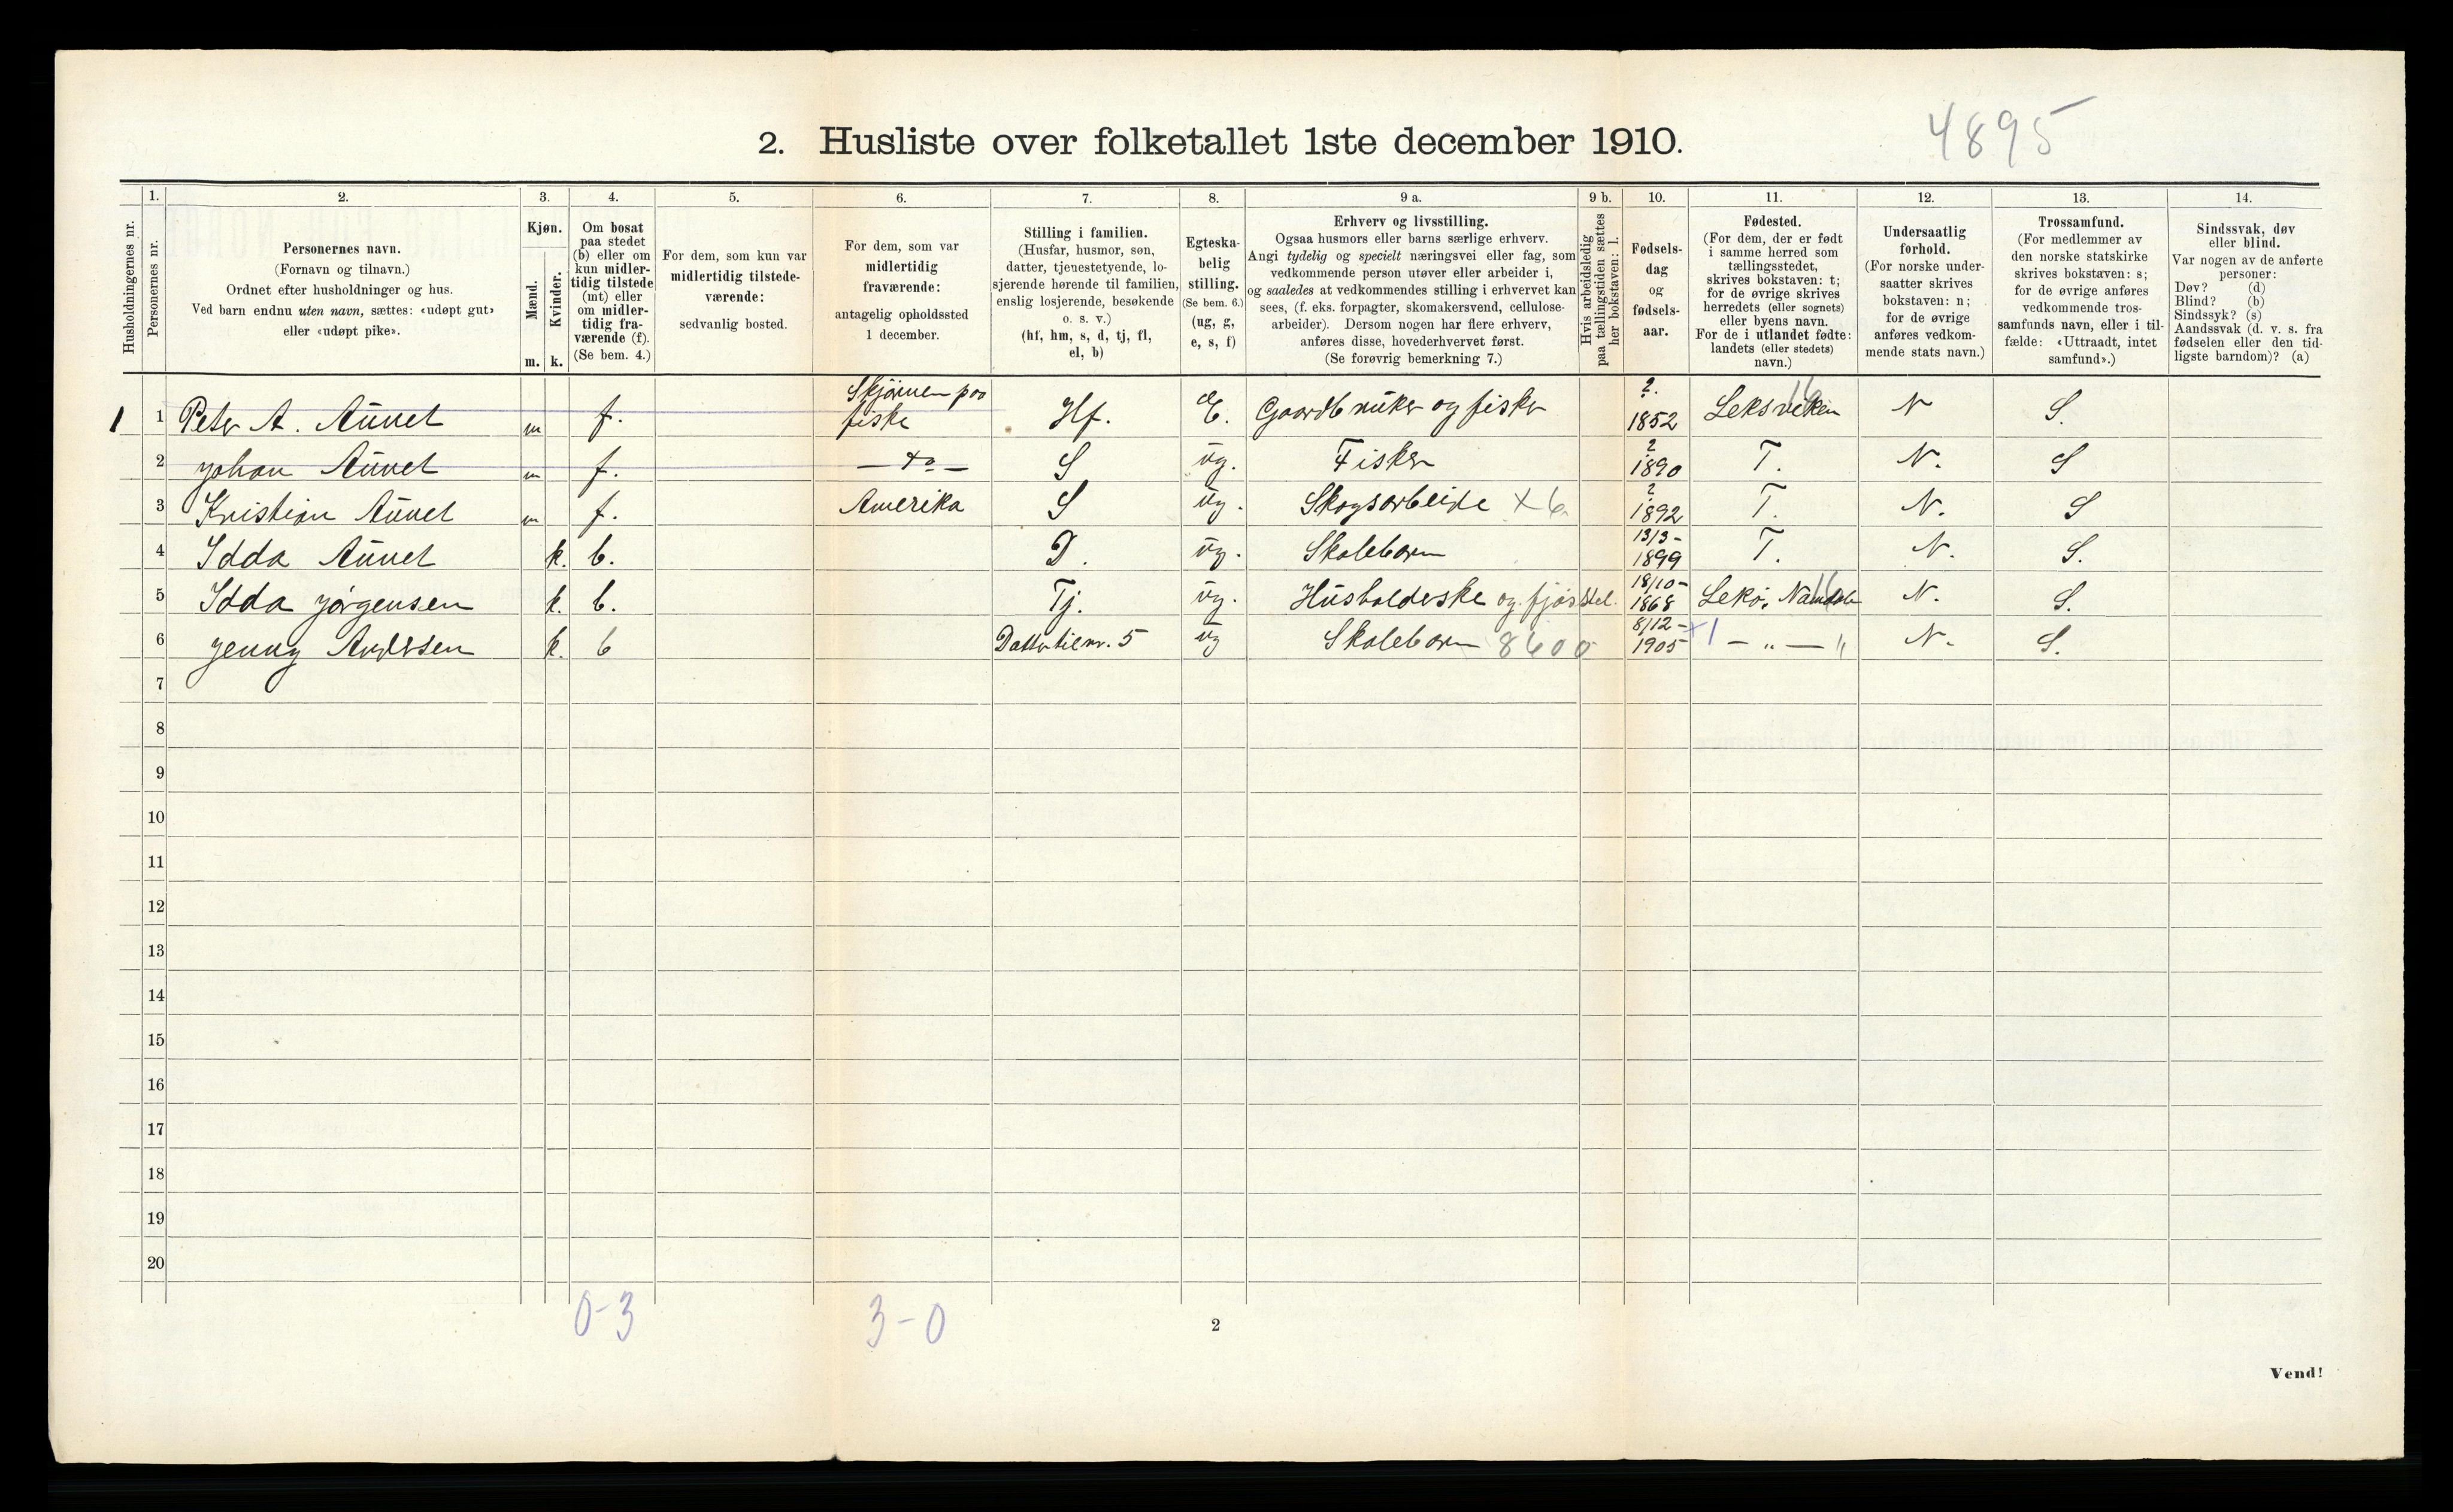 4895
2. Husliste over folketallet 1ste december 1910.
Husholdningernes nr.
1.
Personernes nr.
2.
Personernes navn.
(Fornavn og tilnavn.)
Ordnet efter husholdninger og hus.
Ved barn endnu uten navn, sættes: «udøpt gut»
eller «udøpt pike».
3.
Kjøn.
Mænd.
Kvinder.
m. k.
4.
Om bosat
paa stedet
(b) eller om
kun midler-
tidig tilstede
(mt) eller
om midler-
tidig fra-
værende (f).
(Se bem. 4.)
5.
For dem, som kun var
midlertidig tilstede-
værende:
sedvanlig bosted.
6.
For dem, som var
midlertidig
fraværende:
antagelig opholdssted
1 december.
7.
Stilling i familien.
(Husfar, husmor, søn,
datter, tjenestetyende, lo-
sjerende hørende til familien,
enslig losjerende, besøkende
o. s. v.)
(hf, hm, s, d, tj, fl,
el, b)
8.
Egteska-
belig
stilling.
(Se bem. 6.)
(ug, g,
e, s, f)
9 a.
Erhverv og livsstilling.
Ogsaa husmors eller barns særlige erhverv.
Angi tydelig og specielt næringsvei eller fag, som
vedkommende person utøver eller arbeider i,
og saaledes at vedkommendes stilling i erhvervet kan
sees, (f. eks. forpagter, skomakersvend, cellulose-
arbeider). Dersom nogen har flere erhverv,
anføres disse, hovederhvervet først.
(Se forøvrig bemerkning 7.)
9 b.
Hvis arbeidsledig
paa tællingstiden sættes
her bokstaven: l.
10.
Fødsels-
dag
og
fødsels-
aar.
11.
Fødested.
(For dem, der er født
i samme herred som
tællingsstedet,
skrives bokstaven: t;
for de øvrige skrives
herredets (eller sognets)
eller byens navn.
For de i utlandet fødte:
landets (eller stedets)
navn.)
12.
Undersaatlig
forhold.
(For norske under-
saatter skrives
bokstaven: n;
for de øvrige
anføres vedkom-
mende stats navn.)
13.
Trossamfund.
(For medlemmer av
den norske statskirke
skrives bokstaven: s;
for de øvrige anføres
vedkommende tros-
samfunds navn, eller i til-
fælde: «Uttraadt, intet
samfund».)
14.
Sindssvak, døv
eller blind.
Var nogen av de anførte
personer:
Døv? (d)
Blind? (b)
Sindssyk? (s)
Aandssvak (d. v. s. fra
fødselen eller den tid-
ligste barndom)? (a)
1 1 Peter A. Aunet m f. paa fiske Hf. E. Gaardbruker og fisker ?. 1852 Leksviken 16 N S.
2 Johan Aunet m f. — do — S ug. Fisker ? 1890 T. N. S
3 Kristian Aunet m f. Amerika S ug. Skogsarbeide x 6 ? 1892 T. N. S
4 Idda Aunet k. b. D. ug. Skolebarn 13/3- 1899 T. N. S.
5 Idda Jørgensen k. b. Tj. ug. Husholderske og fjøsstel. 18/10- 1868 Lekø, 16 N. S.
6 Jenny Andersen k. b Datter til nr. 5 ug Skolebarn 8600 8/12- 1905 +1 — „ — „ N. S.
7
8
9
10
11
12
13
14
15
16
17
18
19
20
0-3
3-0
2
Vend!